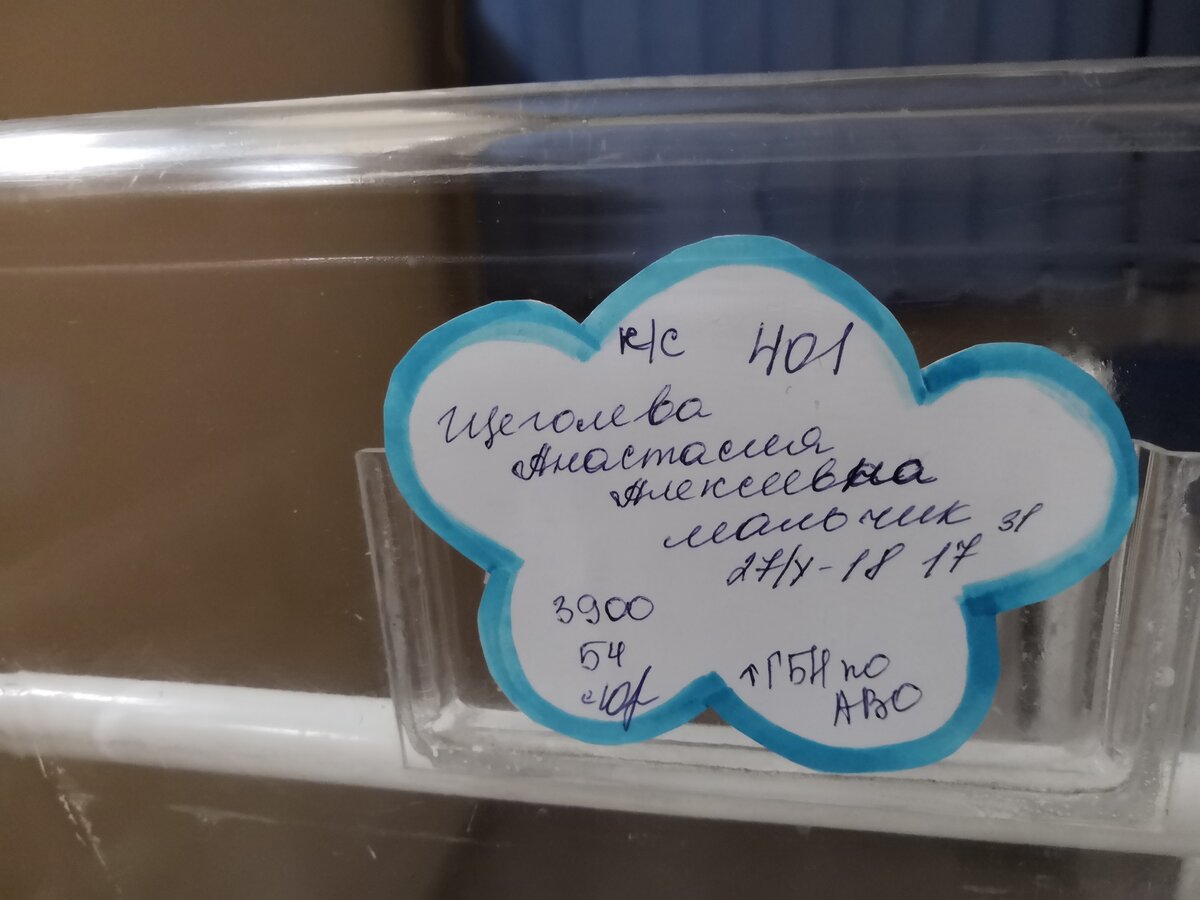 к/с 401
Щеголева
Анастасия
Алексеевна
мальчик
27/V-18 17 31
3900
54
↑ГБН по
АВО